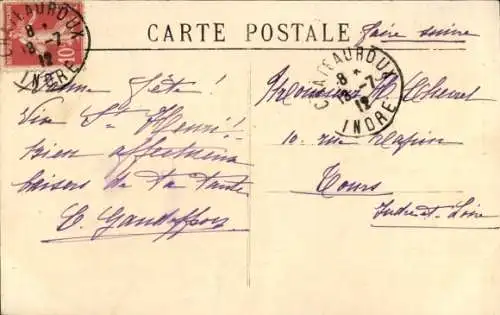 CARTE POSTALE
faire suivre
CHATEAUROUX
8 *
13 -7
12
INDRE
Bonne fête!
Vive St Henri!
bien affectueux
baisers de ta tante
Monsieur H.
10 rue
Tours
Indre-et-Loire
CHATEAUROUX
8 *
13 -7
12
INDRE
10